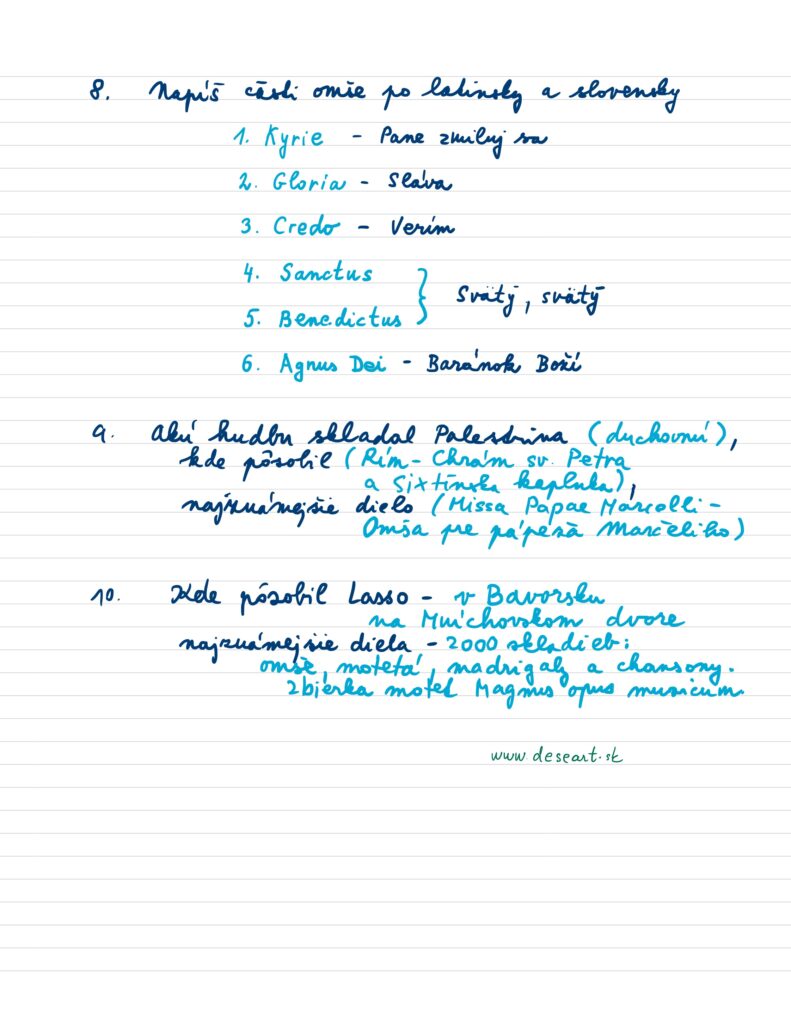 8. Napíš časti omše po latinsky a slovensky
1. Kyrie - Pane zmiluj sa
2. Gloria - Sláva
3. Credo - Verím
4. Sanctus
5. Benedictus } Svätý, svätý
6. Agnus Dei - Baránok Boží
9. Akú hudbu skladal Palestrina (duchovnú),
kde pôsobil (Rím - Chrám sv. Petra
a Sixtínska kaplnka),
najznámejšie dielo (Missa Papae Marcelli -
Omša pre pápeža Marčeliho)
10. Kde pôsobil Lasso - v Bavorsku
na Mníchovskom dvore
najznámejšie diela - 2000 skladieb:
omše, motetá, madrigaly a chansony.
Zbierka motet Magnus opus musicum.
www.deseart.sk